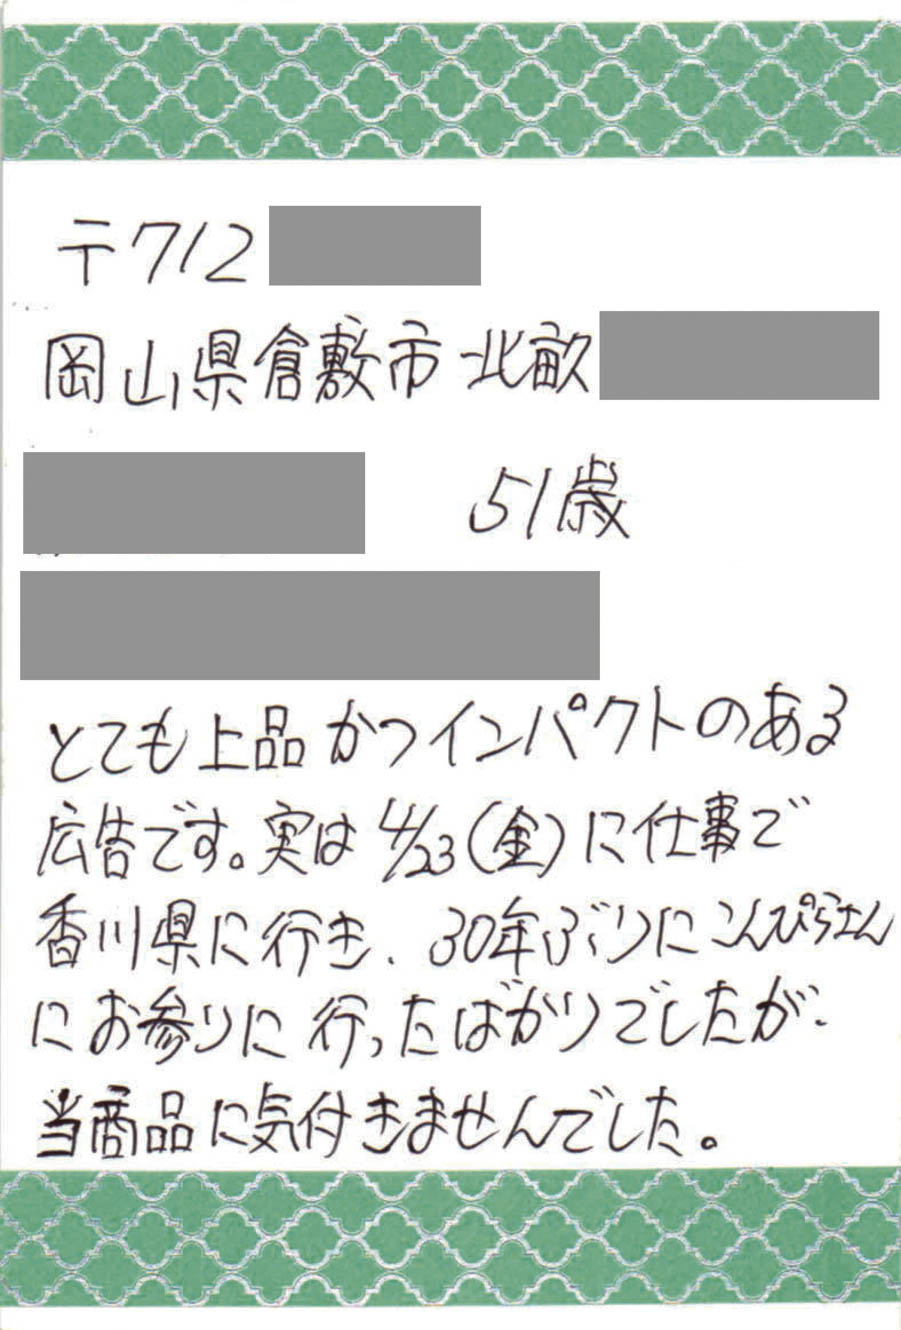 〒712
岡山県倉敷市北畝
51歳
とても上品かつインパクトのある
広告です。実は4/23(金)に仕事で
香川県に行き、30年ぶりにこんぴらさん
にお参りに行ったばかりでしたが、
当商品に気付きませんでした。